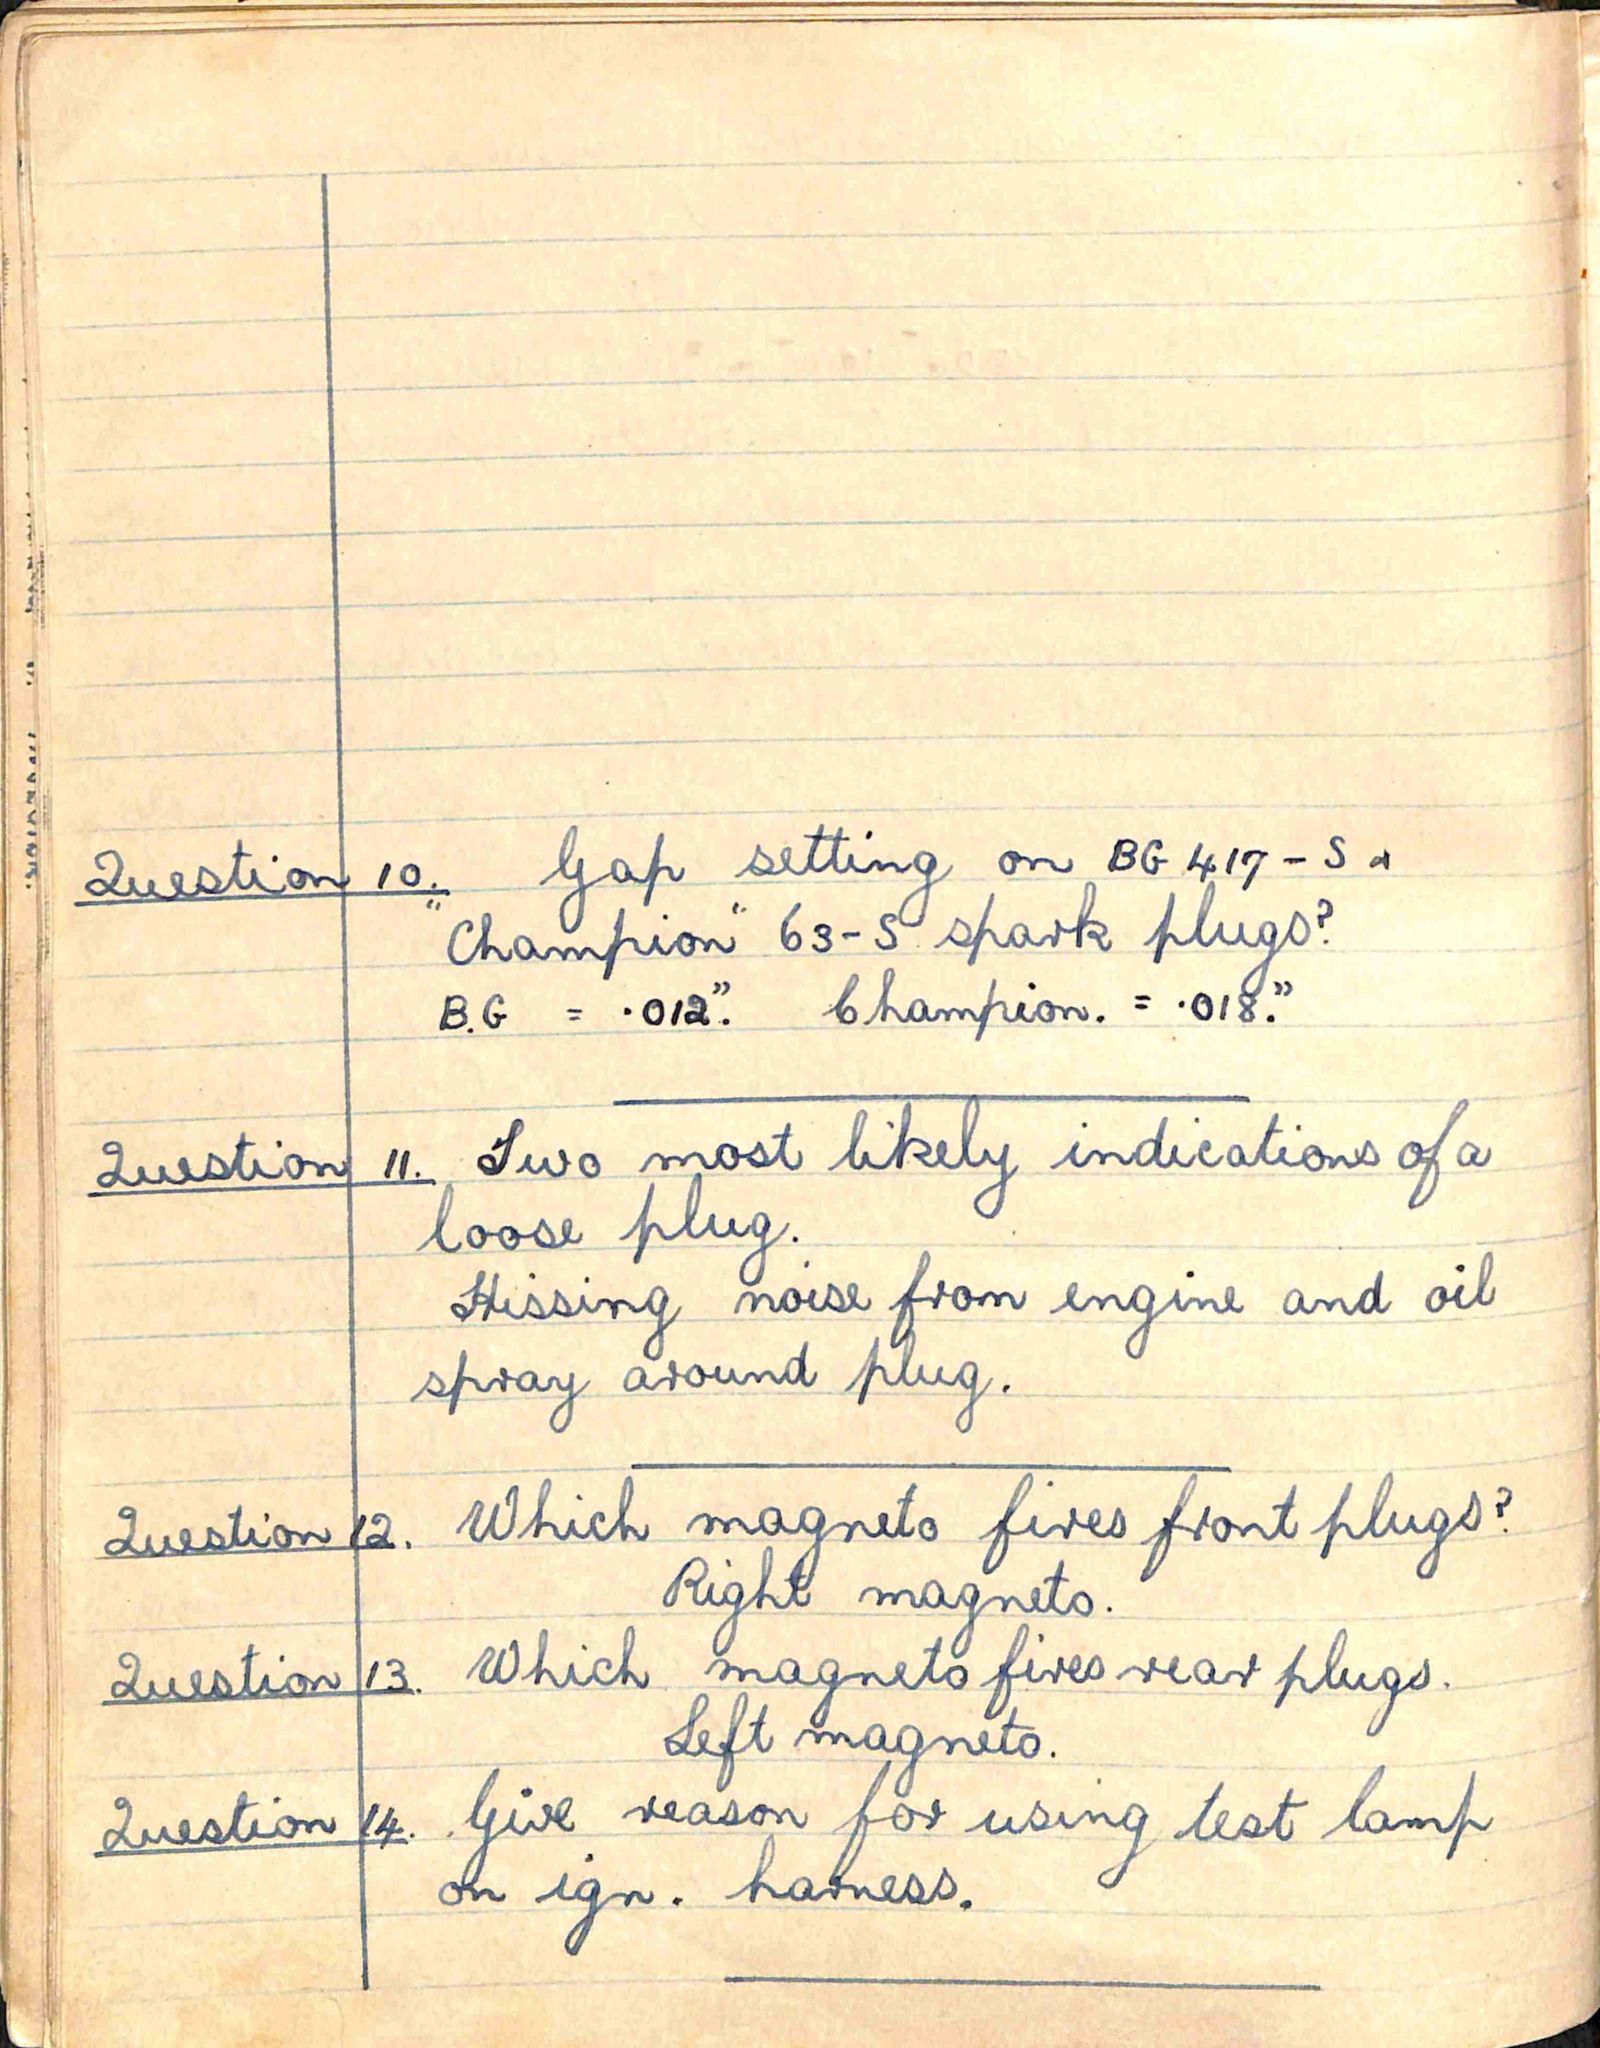 Question 10. Gap setting on BG 417-S &
"Champion" 63-S spark plugs?
B.G = .012". Champion. = .018."
Question 11. Two most likely indications of a
loose plug.
Hissing noise from engine and oil
spray around plug.
Question 12. Which magneto fires front plugs?
Right magneto.
Question 13. Which magneto fires rear plugs.
Left magneto.
Question 14. Give reason for using test lamp
on ign. harness.